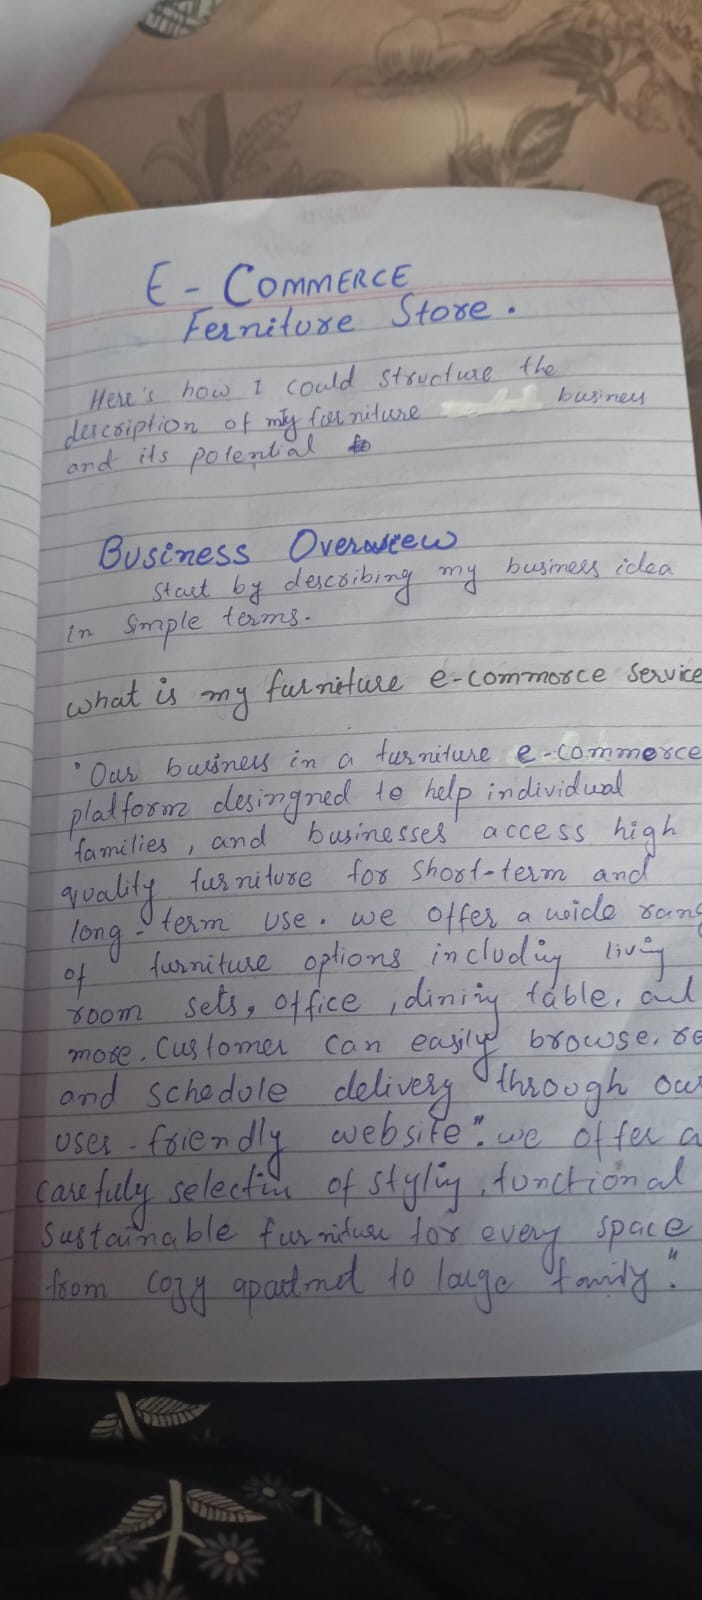 E - COMMERCE
Ferniture Store.
Here's how I could structure the
description of my furniture business
and its potential
Business Overview
Start by describing my business idea
in simple terms.
what is my furniture e-commorce service
"Our business in a furniture e-commerce
platform desingned to help individual
families, and businesses access high
quality furniture for short-term and
long-term use. we offer a wide rang
of furniture options including living
room sets, office, dining table, and
more. Customer can easily browse,
and schedule delivery through our
user-friendly website". we offer a
carefuly selectin of styling, functional
sustainable furniture for every space
from cozy apartmet to large family."